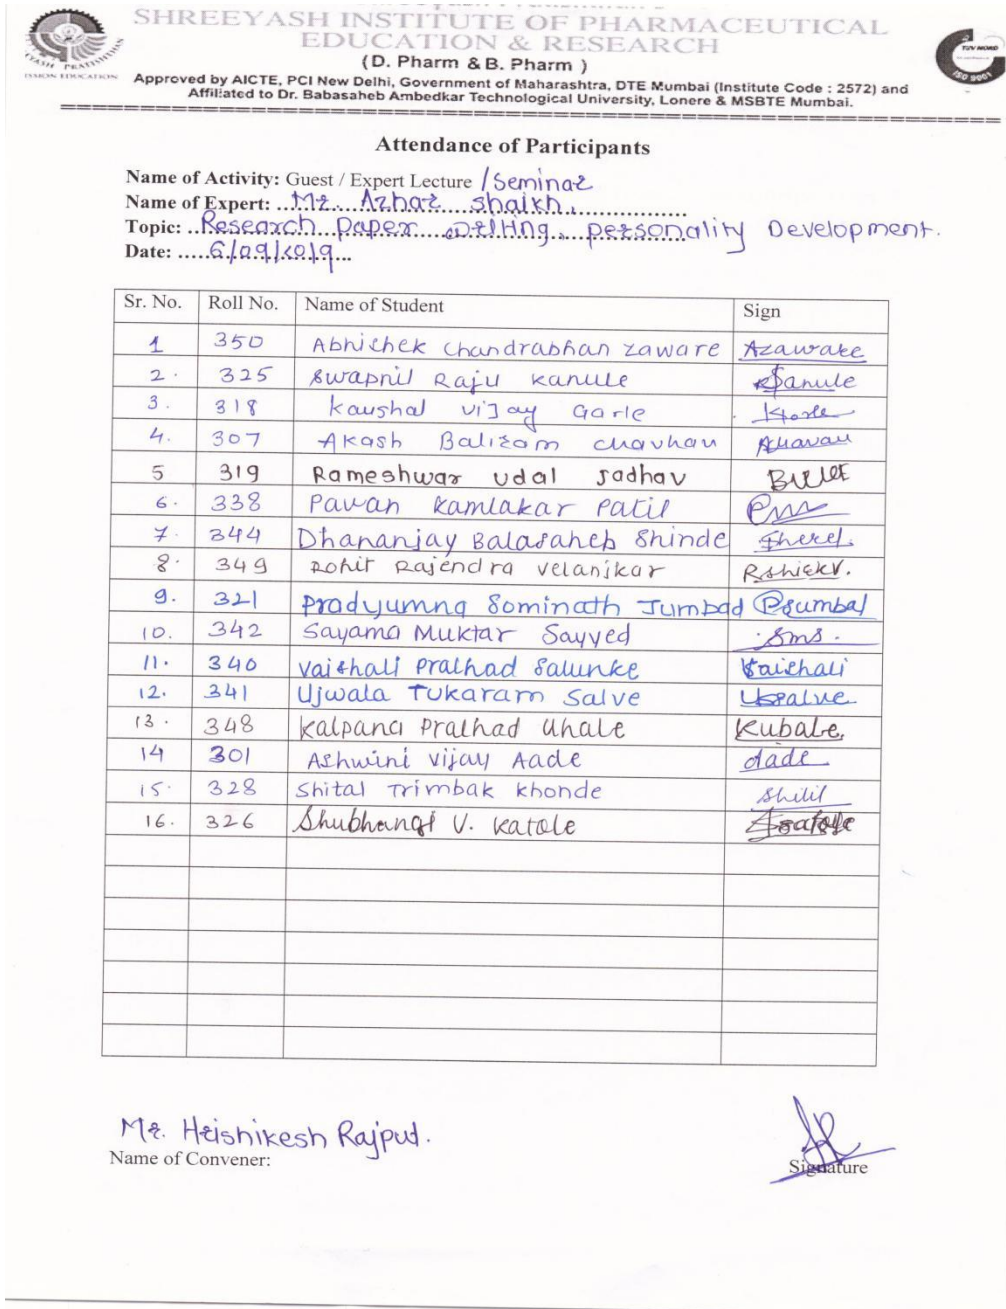 SHREEYASH INSTITUTE OF PHARMACEUTICAL
EDUCATION & RESEARCH
(D. Pharm & B. Pharm )
Approved by AICTE, PCI New Delhi, Government of Maharashtra, DTE Mumbai (Institute Code : 2572) and
Affiliated to Dr. Babasaheb Ambedkar Technological University, Lonere & MSBTE Mumbai.
TUV NORD
ISO 9001
Attendance of Participants
Name of Activity: Guest / Expert Lecture / Seminar
Name of Expert: Mr. Azhar Shaikh.
Topic: Research paper writing, personality Development.
Date: 6/09/2019
Sr. No. Roll No. Name of Student Sign
1 350 Abhishek Chandrabhan Zaware Azaware
2. 325 Swapnil Raju Kanule
3. 318 Kaushal Vijay Garle
4. 307 Akash Baliram Chavhan
5 319 Rameshwar Udal Jadhav
6. 338 Pavan Kamlakar Patil
7. 344 Dhananjay Balasaheb Shinde
8. 349 Rohit Rajendra Velanjkar
9. 321 Pradyumna Sominath Jumbad
10. 342 Sayama Muktar Sayyed Sms.
11. 340 Vaishali Pralhad Salunke Vaishali
12. 341 Ujwala Tukaram Salve
13. 348 Kalpana Pralhad Uhale
14 301 Ashwini Vijay Aade Aade
15. 328 Shital Trimbak Khonde
16. 326 Shubhangi V. Katole
Mr. Hrishikesh Rajput.
Name of Convener:
Signature